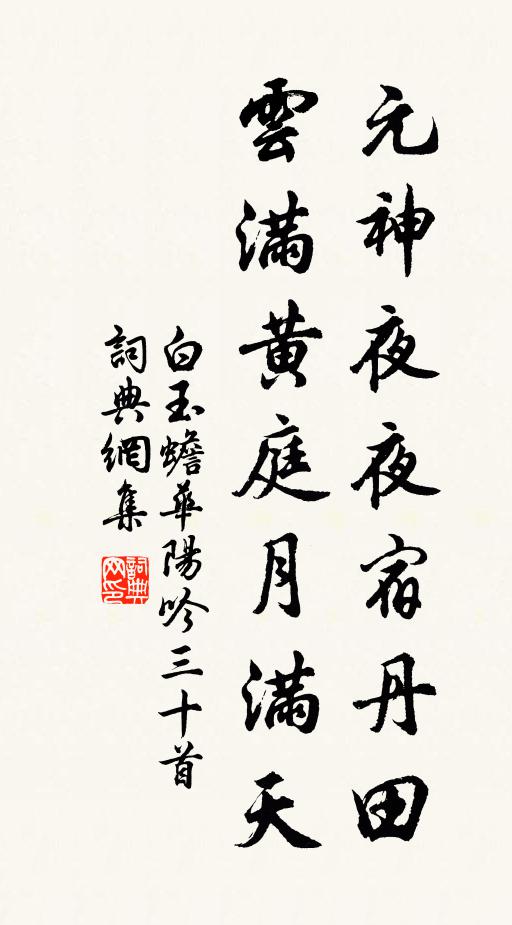 元神夜夜宿丹田
雲滿黃庭月滿天
白玉蟾華陽吟三十首
詞典網集
詞典网印